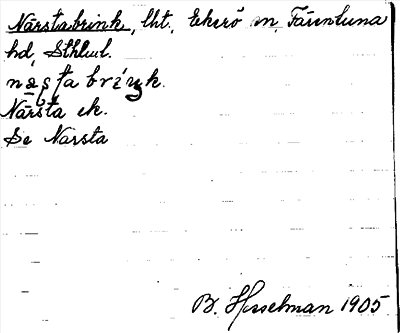 Närstabrink, lht, Ekerö sn, Färentuna
hd, Sthlm l.
Närsta ek.
Se Närsta
B. Hesselman 1905